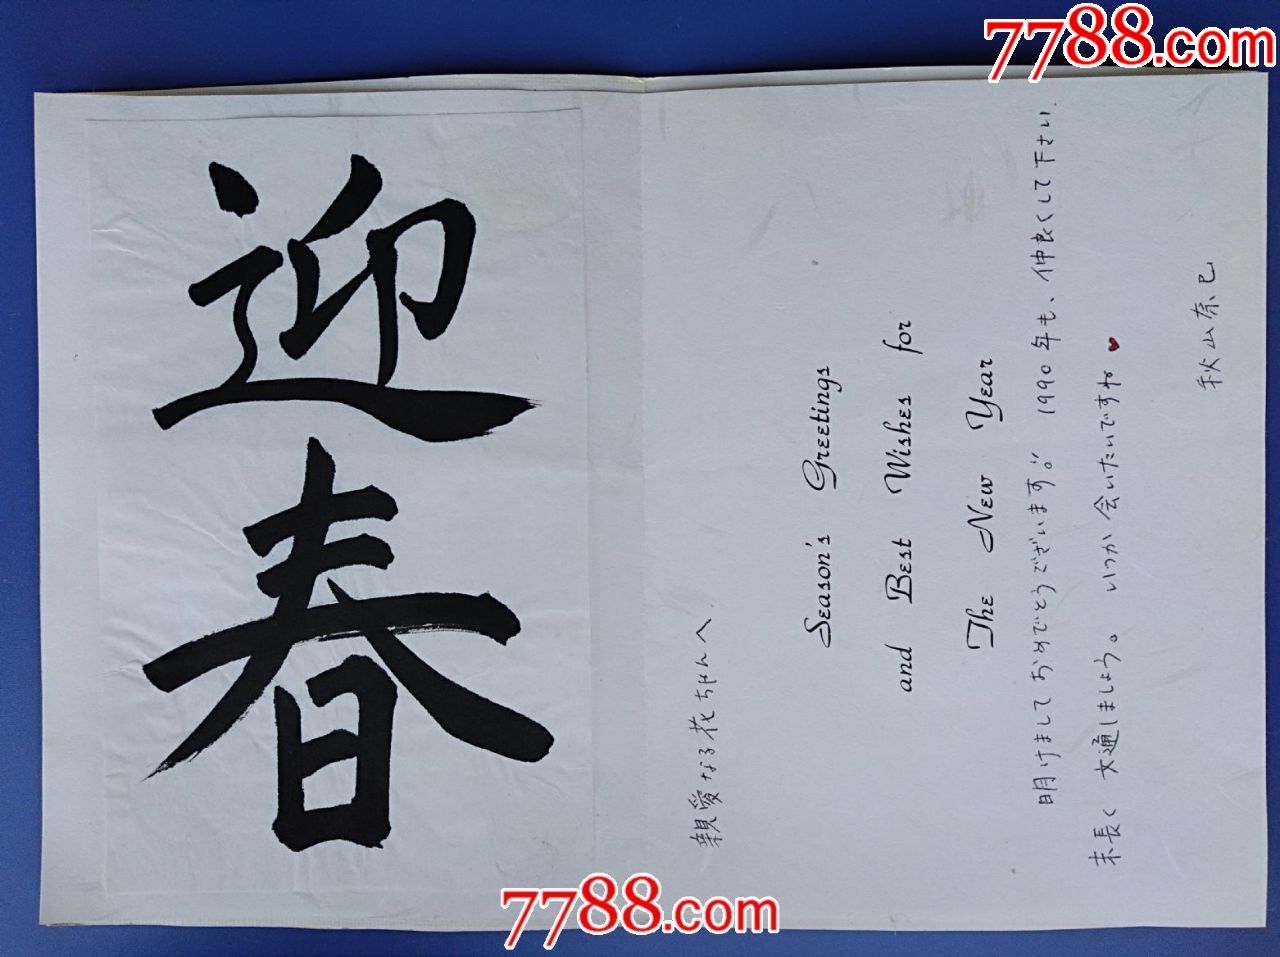 7788.com
迎春
親愛なる花ちゃんへ
Season's Greetings
and Best Wishes for
The New Year
明けましておめでとうございます。 1990年も、仲良くして下さい
末長く文通しましょう。 いつか会いたいですね♥
秋山奈巳
7788.com